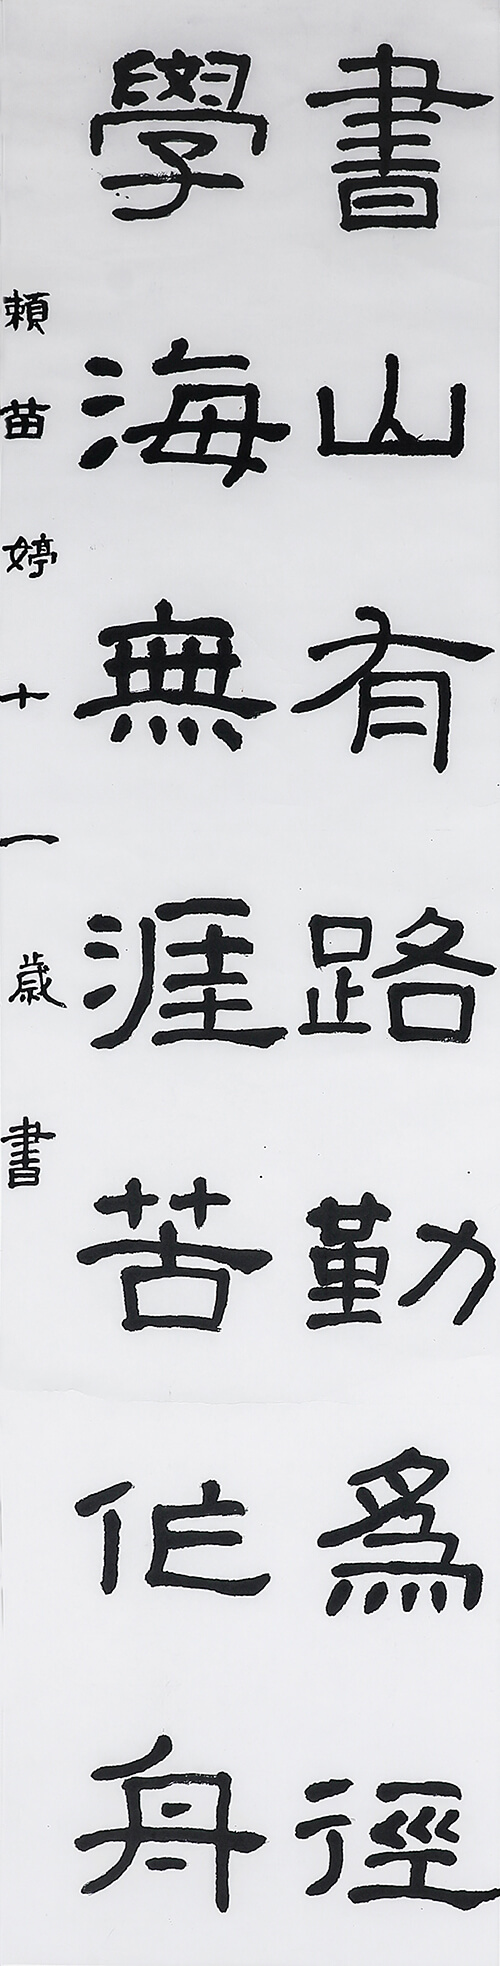 書山有路勤為徑
學海無涯苦作舟
賴苗婷十一歲書